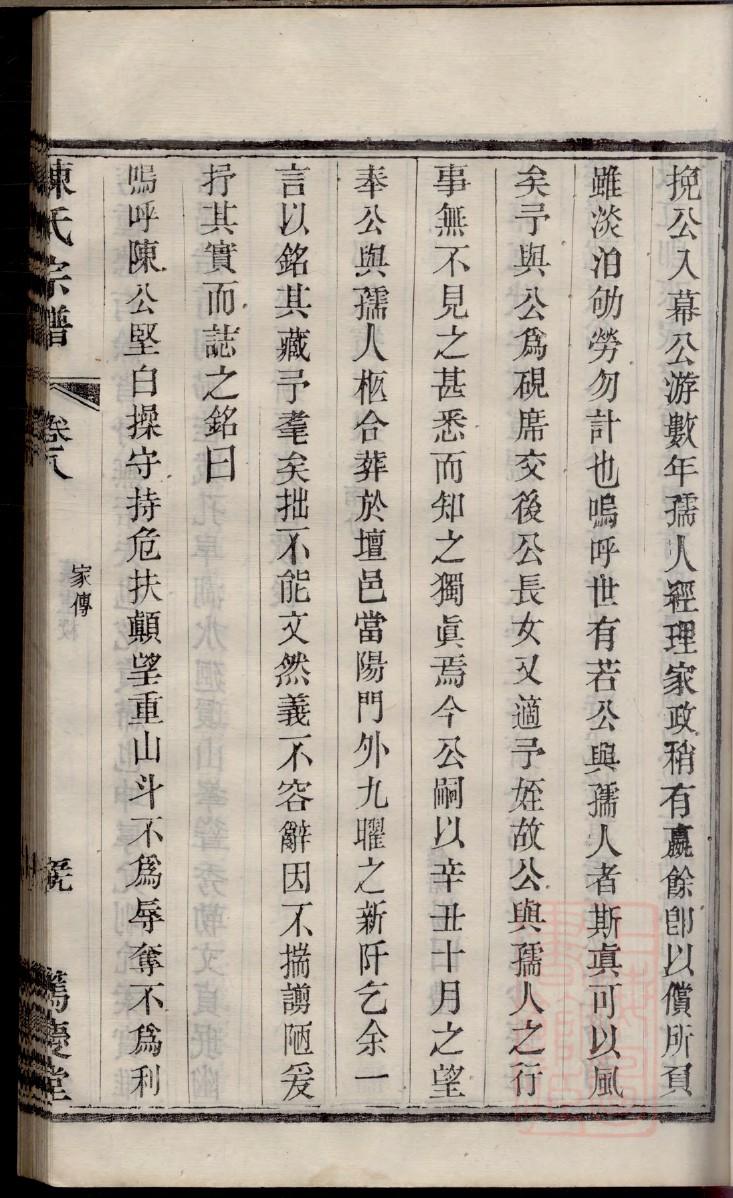 挽公入幕公游數年孺人經理家政稍有嬴餘卽以償所負
雖淡泊劬勞勿計也嗚呼世有若公與孺人者斯眞可以風
矣予與公爲硯席交後公長女又適予姪故公與孺人之行
事無不見之甚悉而知之獨眞焉今公嗣以辛丑十月之望
奉公與孺人柩合葬於壇邑當陽門外九曜之新阡乞余一
言以銘其藏予耄矣拙不能文然義不容辭因不揣謭陋爰
抒其實而誌之銘曰
嗚呼陳公堅白操守持危扶顚望重山斗不爲辱奪不爲利
陳氏宗譜
卷八
家傳
篤慶堂